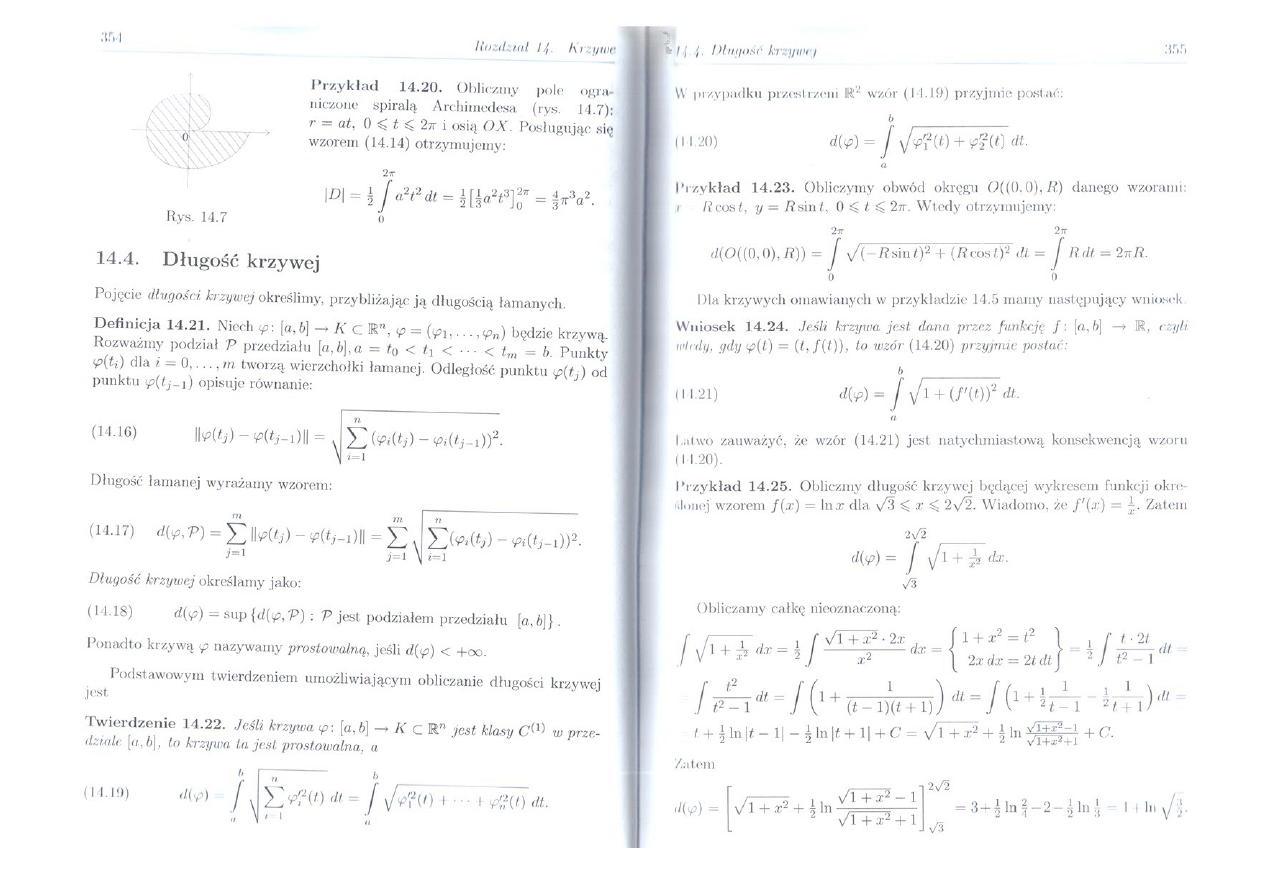 354
Rozdział 14. Krzywe
0
Rys. 14.7
Przykład 14.20. Obliczmy pole ogra-
niczone spiralą Archimedesa (rys. 14.7):
r = at, 0 ⩽ t ⩽ 2π i osią OX. Posługując się
wzorem (14.14) otrzymujemy:
|D| = ½ ∫₀^{2π} a²t² dt = ½[⅓a²t³]₀^{2π} = 4/3 π³a².
14.4. Długość krzywej
Pojęcie długości krzywej określimy, przybliżając ją długością łamanych.
Definicja 14.21. Niech φ: [a, b] → K ⊂ ℝⁿ, φ = (φ₁, . . . , φₙ) będzie krzywą.
Rozważmy podział P przedziału [a, b], a = t₀ < t₁ < · · · < tₘ = b. Punkty
φ(tᵢ) dla i = 0, . . . , m tworzą wierzchołki łamanej. Odległość punktu φ(tⱼ) od
punktu φ(tⱼ₋₁) opisuje równanie:
(14.16) ‖φ(tⱼ) − φ(tⱼ₋₁)‖ = √(∑_{i=1}^{n} (φᵢ(tⱼ) − φᵢ(tⱼ₋₁))²).
Długość łamanej wyrażamy wzorem:
(14.17) d(φ, P) = ∑_{j=1}^{m} ‖φ(tⱼ) − φ(tⱼ₋₁)‖ = ∑_{j=1}^{m} √(∑_{i=1}^{n} (φᵢ(tⱼ) − φᵢ(tⱼ₋₁))²).
Długość krzywej określamy jako:
(14.18) d(φ) = sup {d(φ, P) : P jest podziałem przedziału [a, b]} .
Ponadto krzywą φ nazywamy prostowalną, jeśli d(φ) < +∞.
Podstawowym twierdzeniem umożliwiającym obliczanie długości krzywej
jest
Twierdzenie 14.22. Jeśli krzywa φ: [a, b] → K ⊂ ℝⁿ jest klasy C⁽¹⁾ w prze-
dziale [a, b], to krzywa ta jest prostowalna, a
(14.19) d(φ) = ∫ₐᵇ √(∑_{i=1}^{n} φᵢ′²(t)) dt = ∫ₐᵇ √(φ₁′²(t) + · · · + φₙ′²(t)) dt.
14.4. Długość krzywej
355
W przypadku przestrzeni ℝ² wzór (14.19) przyjmie postać:
(14.20) d(φ) = ∫ₐᵇ √(φ₁′²(t) + φ₂′²(t)) dt.
Przykład 14.23. Obliczymy obwód okręgu O((0, 0), R) danego wzorami:
x = R cos t, y = R sin t, 0 ⩽ t ⩽ 2π. Wtedy otrzymujemy:
d(O((0, 0), R)) = ∫₀^{2π} √((−R sin t)² + (R cos t)²) dt = ∫₀^{2π} R dt = 2πR.
Dla krzywych omawianych w przykładzie 14.5 mamy następujący wniosek.
Wniosek 14.24. Jeśli krzywa jest dana przez funkcję f : [a, b] → ℝ, czyli
wtedy, gdy φ(t) = (t, f(t)), to wzór (14.20) przyjmie postać:
(14.21) d(φ) = ∫ₐᵇ √(1 + (f′(t))²) dt.
Łatwo zauważyć, że wzór (14.21) jest natychmiastową konsekwencją wzoru
(14.20).
Przykład 14.25. Obliczmy długość krzywej będącej wykresem funkcji okre-
ślonej wzorem f(x) = ln x dla √3 ⩽ x ⩽ 2√2. Wiadomo, że f′(x) = 1/x. Zatem
d(φ) = ∫_{√3}^{2√2} √(1 + 1/x²) dx.
Obliczamy całkę nieoznaczoną:
∫ √(1 + 1/x²) dx = ½ ∫ (√(1 + x²) · 2x)/x² dx = { 1 + x² = t² ; 2x dx = 2t dt } = ½ ∫ (t · 2t)/(t² − 1) dt =
= ∫ t²/(t² − 1) dt = ∫ (1 + 1/((t − 1)(t + 1))) dt = ∫ (1 + ½ 1/(t − 1) − ½ 1/(t + 1)) dt =
= t + ½ ln |t − 1| − ½ ln |t + 1| + C = √(1 + x²) + ½ ln (√(1+x²)−1)/(√(1+x²)+1) + C.
Zatem
d(φ) = [√(1 + x²) + ½ ln (√(1 + x²) − 1)/(√(1 + x²) + 1)]_{√3}^{2√2} = 3 + ½ ln 2/4 − 2 − ½ ln 1/3 = 1 + ln √(3/2).